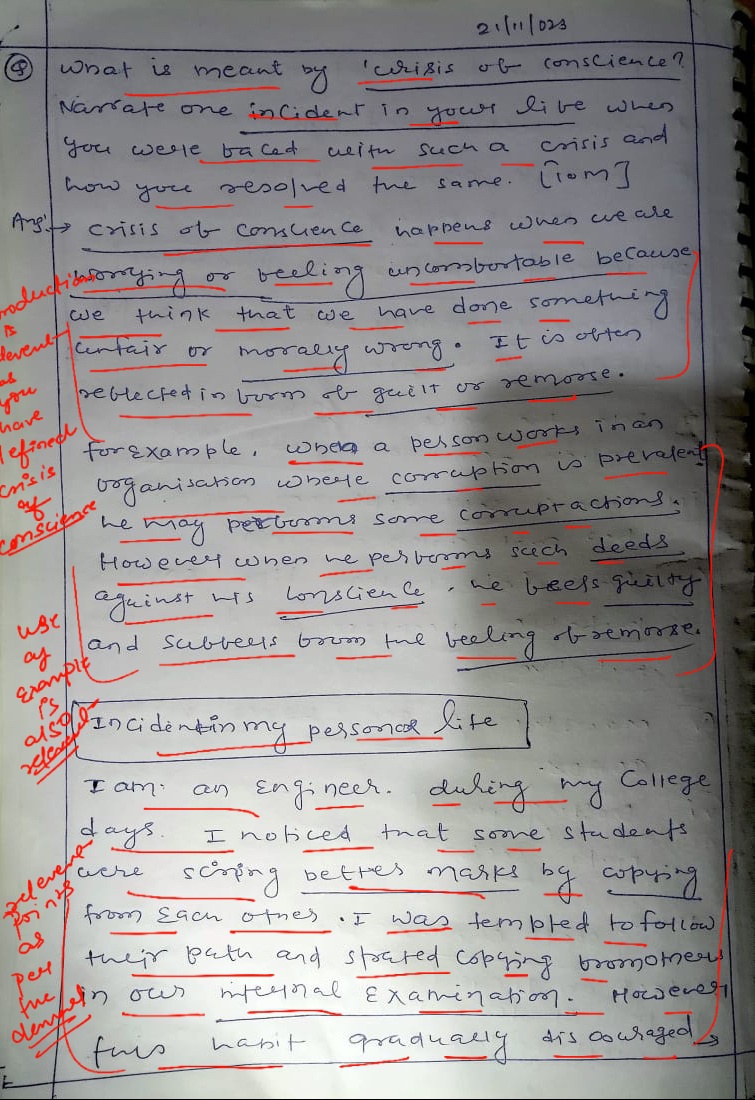 21/11/023
Q What is meant by 'crisis of conscience?
Narrate one incident in your life when
you were faced with such a crisis and
how you resolved the same. [10M]
Ans → crisis of conscience happens when we are
worrying or feeling uncomfortable because
we think that we have done something
unfair or morally wrong. It is often
reflected in form of guilt or remorse.
for Example, when a person works in an
organisation where corruption is prevalent
he may performs some corrupt actions.
However when he performs such deeds
against his conscience, he feels guilty
and suffers from the feeling of remorse.
Incident in my personal life
I am an Engineer. during my College
days. I noticed that some students
were scoring better marks by copying
from Each other. I was tempted to follow
their path and strated copying from others
in our internal Examination. However
this habit gradually discouraged →
roduction
is
levent
as
you
have
defined
crisis
of
conscience
use
of
Example
is
also
relevant
Relevant
points
as
per
the
demand